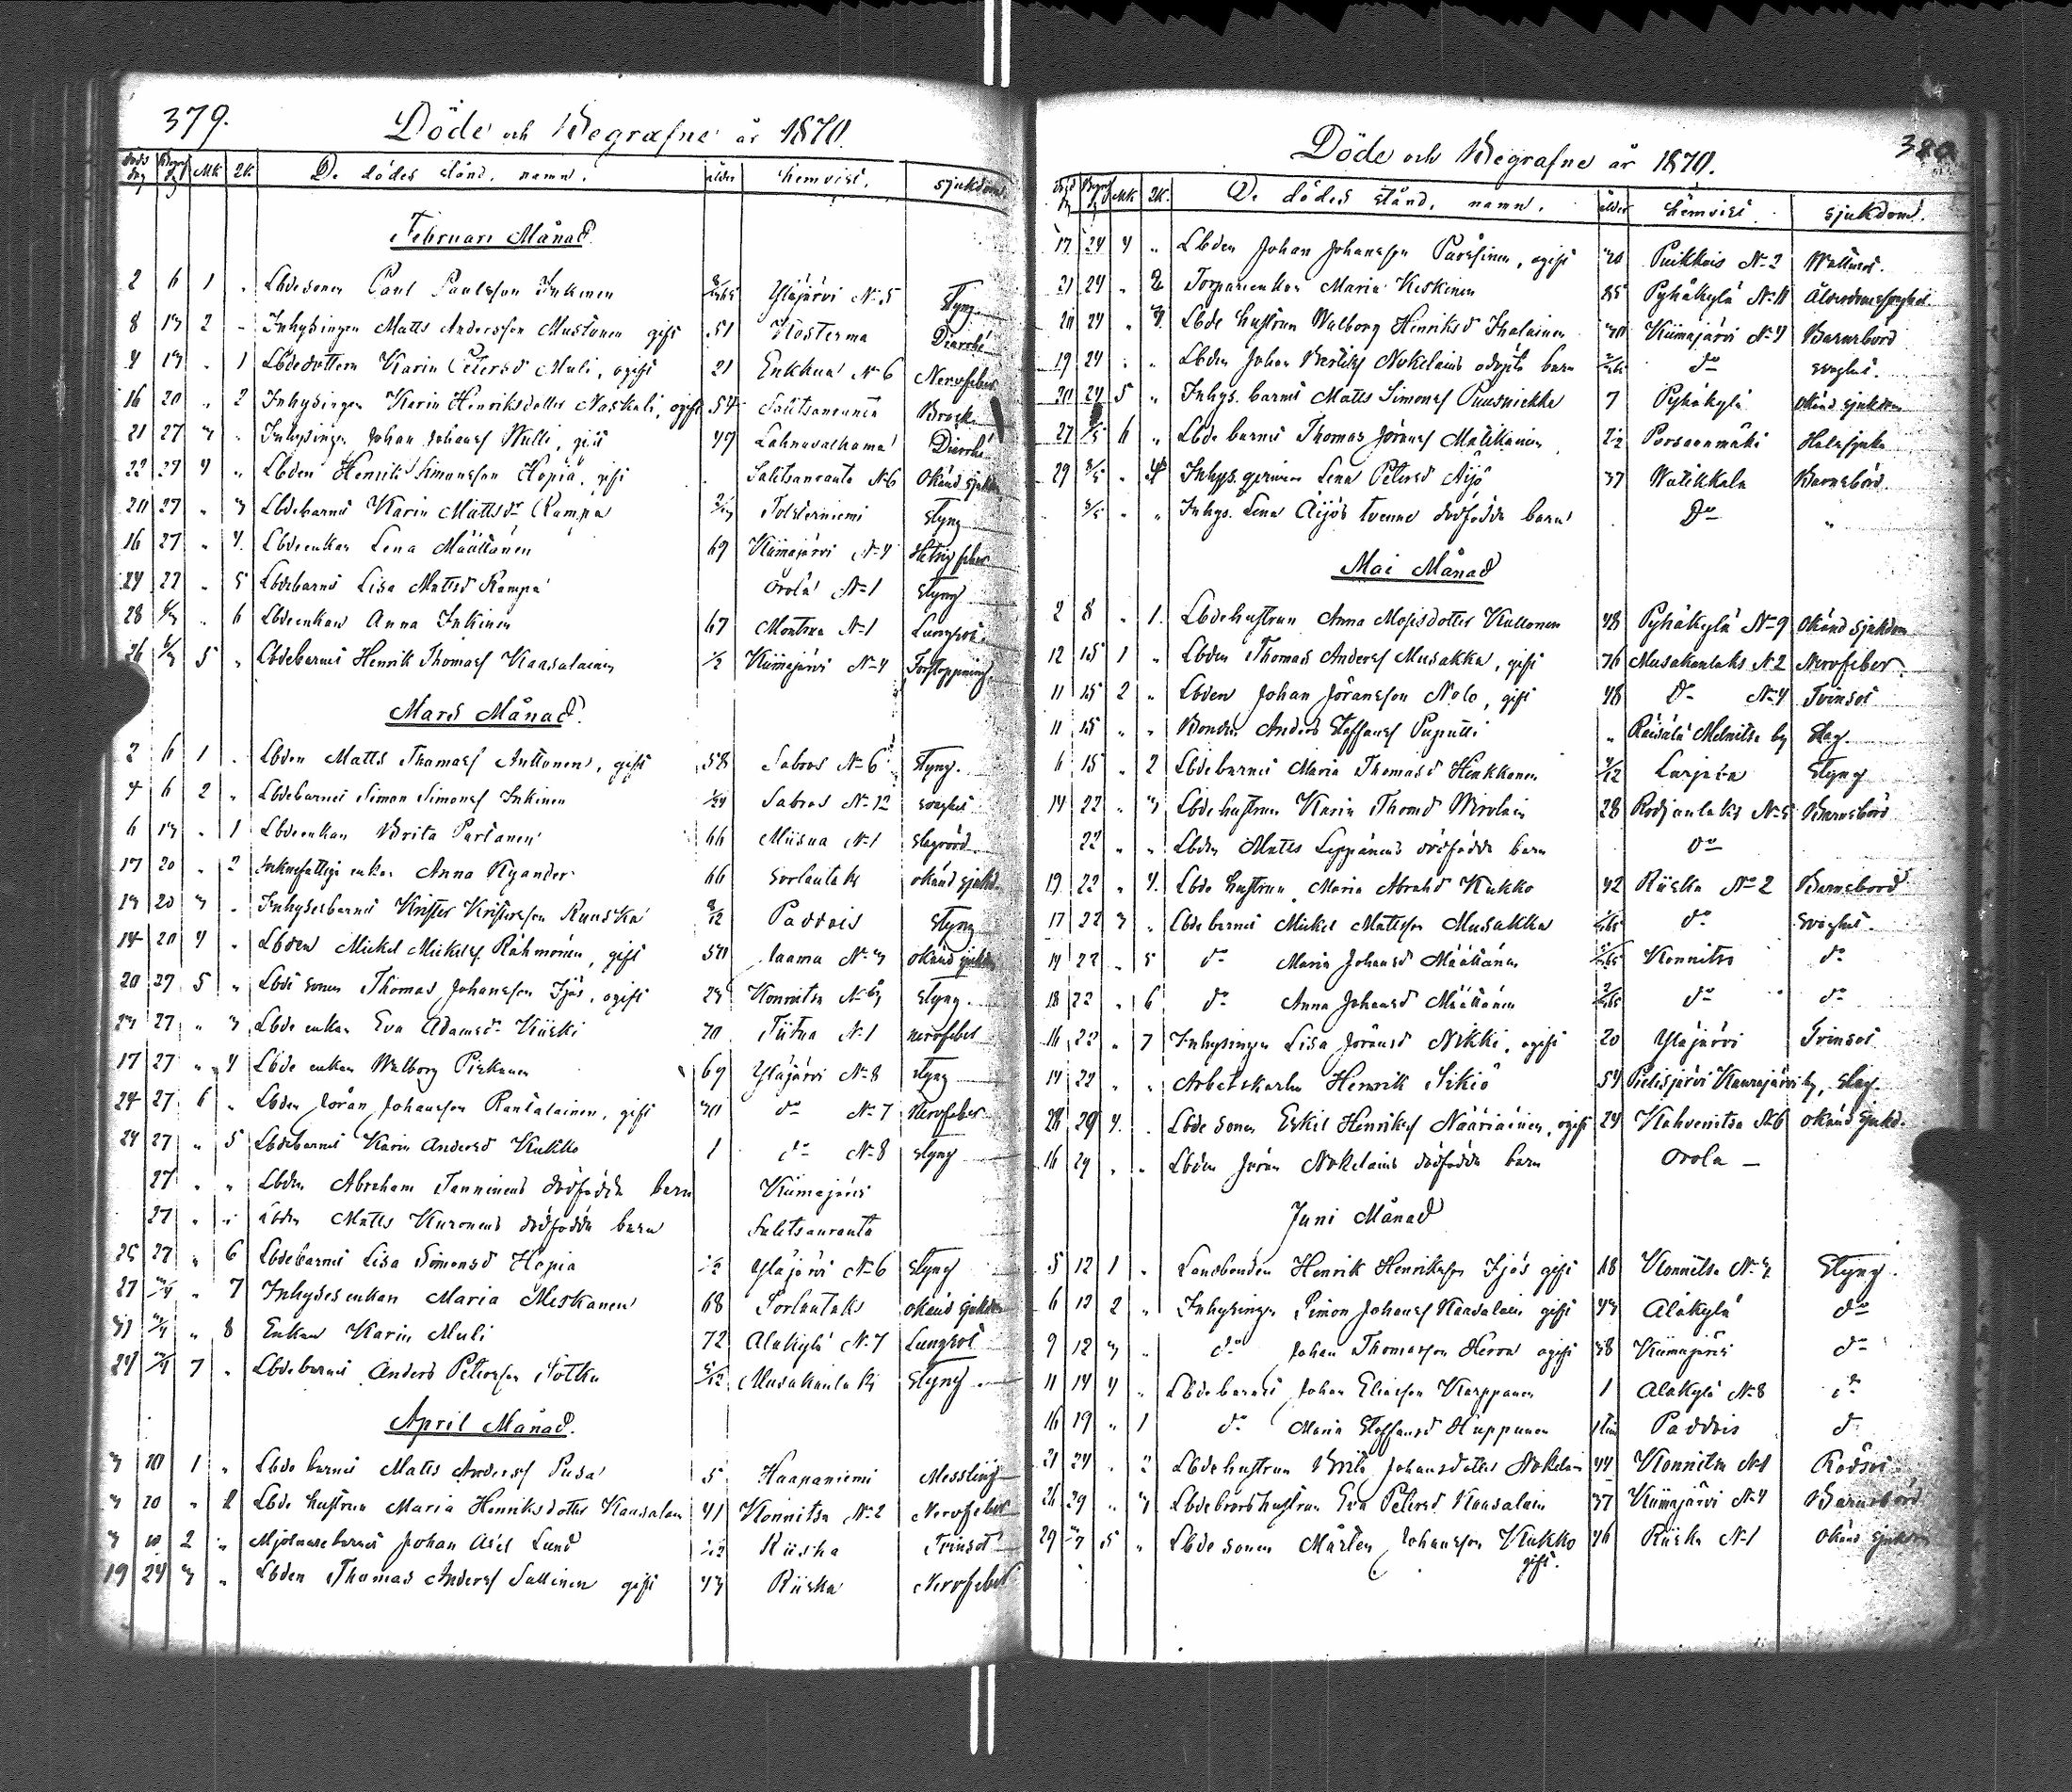 379.
Döde och Begrafne år 1870.
Döds dag Begraf. dg MK QK. De dödes stånd, namn. ålder hemvist. sjukdom
Februari Månad
2 6 1 „ Lbdesonen Paul Paulsson Inkinen Yläjärvi No 5 Styng
8 13 2 „ Inhysingen Matts Andersson Mustonen gift 51 Kosterma Diarrhé
4 13 „ 1 Lbdedottern Karin Petersd Muli, ogift 21 Enkkua No 6 Nervfeber
16 20 „ 2 Inhysingen Karin Henriksdotter Naskali, ogift 54 Salitsanranta Brock
21 27 3 „ Inhysingen Johan Johansf Hulli, gift 47 Lahnavalkama Diarrhé
22 27 4 „ Lbden Henrik Simonsson Hopia, gift Salitsanranta No 6 Okänd sjukdm
20 27 „ 3 Lbdebarnet Karin Mattsdr Rampa Styng
16 27 „ 4. Lbdeenkan Lena Määttänen 69 Kiimajärvi No 4 Hetsig feber
24 27 „ 5 Lbdebarnet Lisa Mattsd Rampa Orola No 1 Styng
28 6/3 „ 6 Lbdeenkan Anna Inkinen 67 Montrua No 1 Lungsot
26 6/3 5 „ Lbdebarnet Henrik Thomasf Kaasalainen 1/2 Kiimajärvi No 4 Förstoppning
Mars Månad
2 6 1 „ Lbden Matts Thomasf Anttonen, gift 58 Sabros No 6 Styng.
4 6 2 „ Lbdebarnet Simon Simonsf Inkinen Sabros No 12 svaghet
6 13 „ 1 Lbdeenkan Brita Partanen 66 Miisua No 1 Slagrörd
17 20 „ 2 enkan Anna Kyander 66 Sorlantaks okänd sjukd.
13 20 3 „ Inhysesbarnet Krister Kristersson Ruuska 8/12 Paddois Styng
14 20 4 „ Lbden Mickel Mickelsf Rähmönen, gift 50 okänd sjukdm
20 27 5 „ Lbde sonen Thomas Johansson Ijäs, ogift 23 Konnitsa Styng.
23 27 „ 3 Lbde enkan Eva Adamsdr Kiiski 70 Tiitua No 1 nervfeber
17 27 „ 4 Lbde enkan Walborg Pirkanen 69 Yläjärvi No 8 styng
24 27 6 „ Lbden Jöran Johansson Rantalainen, gift 30 do No 7 Nervfeber
24 27 „ 5 Lbdebarnet Karin Andersd Kukko 1 do No 8 styng
27 „ „ Lbden Abraham Tanninens dödfödda barn Kiimajärvi
27 „ „ Lbden Matts Kuronens dödfödda barn Salitsanranta
25 27 „ 6 Lbdebarnet Lisa Simonsd Hopia 1/2 Yläjärvi No 6 Styng
27 3/4 „ 7 Inhyses enkan Maria Meskanen 68 Sorlantaks okänd sjukdm
31 3/4 „ 8 Enkan Karin Muli 72 Alakylä No 7 Lungsot
24 3/4 7 „ Lbdebarnet Anders Petersson Sotka 5/12 Musakanlaks Styng
April Månad.
3 10 1 „ Lbdebarnet Matts Andersf Pusa 5 Haapaniemi Messling
3 20 „ 1 Lbde hustrun Maria Henriksdotter Kaasalain 41 Konnitsa No 2 Nervfeber
3 10 2 „ Mjölnarebarnet Johan Axel Lund Riiska Trinsot
19 24 3 „ Lbden Thomas Andersf Sallinen gift 43 Riiska Nervfeber
380
Döde och Begrafne år 1870.
Döds dg Begraf dg MK QK. De dödes stånd, namn. ålder hemvist. sjukdom.
17 24 4 „ Lbden Johan Johansson Parssinen, ogift 20 Puikkois No 2 Wattusot.
21 24 „ 2 Torparenkan Maria Keskinen 85 Pyhäkylä No 11 Ålderdomssvaghet
20 24 „ 3. Lbde hustrun Walborg Henriksd Ihalainen 30 Kiimajärvi No 4 Barnsbörd
19 24 „ „ Lbden Johan Nokelains odöpta barn do svaghet.
20 24 5 „ Inhys. barnet Matts Simonsf Puusniekka 7 Pyhäkylä okänd sjukdom
27 1/5 6 „ Lbde barnet Thomas Jöransf Matikainen 2 1/2 Porsaanmäki Halssjuka
29 8/5 „ 4 Inhys. qvinnan Lena Petersd Äijö 37 Watikkala Barnsbörd
8/5 „ „ Inhys. Lena Äijös tvenne dödfödda barn Do „
Mai Månad
2 8 „ 1. Lbdehustrun Anna Mosisdotter Kultonen 48 Pyhäkylä No 9 Okänd sjukdom
12 15 1 „ Lbden Thomas Andersf Musakka, gift 76 Musakanlaks No 2 Nervfeber.
11 15 2 „ Lbden Johan Jöransson Nolo, gift 48 do No 4 Trinsot
11 15 „ „ Bonden Anders Staffansf Puputti „ Räisälä Melnitsa by Slag.
6 15 „ 2 Lbdebarnet Maria Thomasd Henkkonen 9/12 Styng
14 22 „ 3 Lbde hustrun Karin Thomd Wirolain 28 Rodjanlaks No 5 Barnsbörd
22 „ „ Lbden Matts Leppänens dödfödda barn do
19 22 „ 4. Lbde hustrun Maria Abrahd Kukko 42 Riiska No 2 Barnsbörd
17 22 3 „ Lbde barnet Mickel Mattsson Musakka do svaghet.
14 22 „ 5 do Maria Johansd Määttänen Konnitsa do
18 22 „ 6 do Anna Johansd Määttänen do do
16 22 „ 7 Inhysingen Lisa Jöransd Nikki, ogift 20 Yläjärvi Trinsot
14 22 „ „ Arbetskarlen Henrik Sikiö 54 Pielisjärvi Kaurajärvi by, Slag.
28 29 4. „ Lbde sonen Eskil Henriksf Nääriäinen, ogift 24 Kahvenitsa No 6 okänd sjukd.
16 29 „ „ Lbden Jöran Nokelains dödfödda barn Orola
Juni Månad
5 12 1 „ Landbonden Henrik Henriksson Ijäs gift 68 Konnitsa Styng.
6 12 2 „ Inhysingen Simon Johansf Kaasalain gift 43 Alakylä do
9 12 3 „ do Johan Thomasson Herra ogift 38 Kiimajärvi do
11 14 4 „ Lbdebarnet Johan Eliasson Karppanen 1 Alakylä No 8 do
16 19 „ 1 do Maria Staffansd Huppunen 1 tim Paddois d
21 24 „ 2 Lbdehustrun Brita Johansdotter Nokelain 44 Konnitsa No 1 Rödsot
26 29 „ 3 Lbdebrorshustrun Eva Petersd Kaasalain 37 Kiimajärvi No 4 Barnsbörd
29 3/7 5 „ Lbde sonen Mårten Johansson Kukko 46 Riiska No 1 Okänd sjukdom
gift.